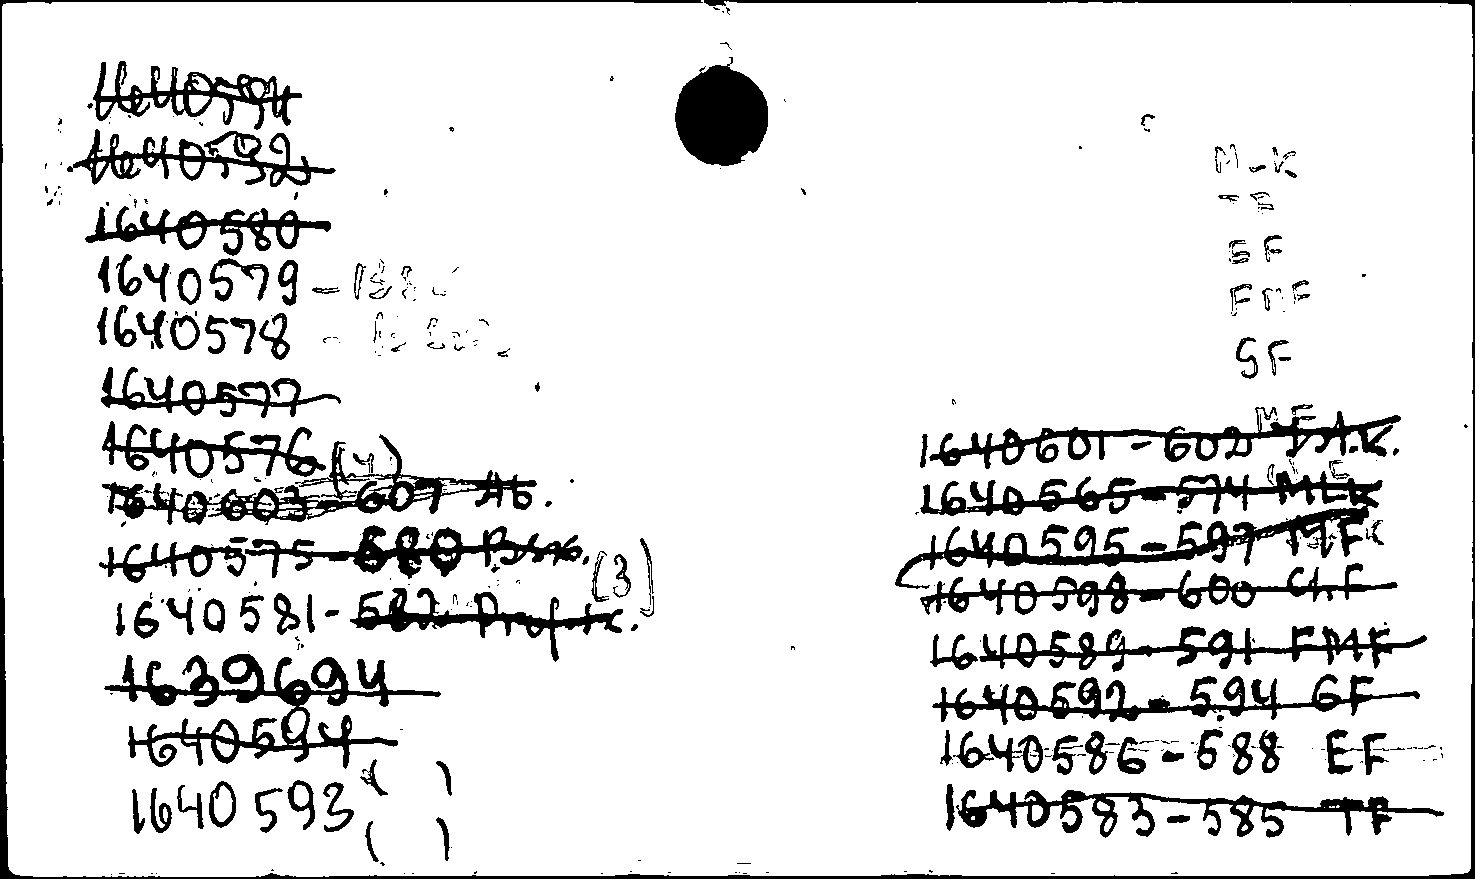 1640594
1640592
1640580
1640579 -
1640578 -
1640577
1640576 (4)
1640603 - 607 Ab.
1640575 - 580
1640581 - 582
(3)
1639694
1640594
1640593 ( )
( )
MLK
TF
GF
FMF
GF
MF
1640601 - 602
1640565 - 574 MLK
1640595 - 597 MF
1640598 - 600
1640589 - 591 FMF
1640592 - 594 GF
1640586 - 588 EF
1640583 - 585 TF